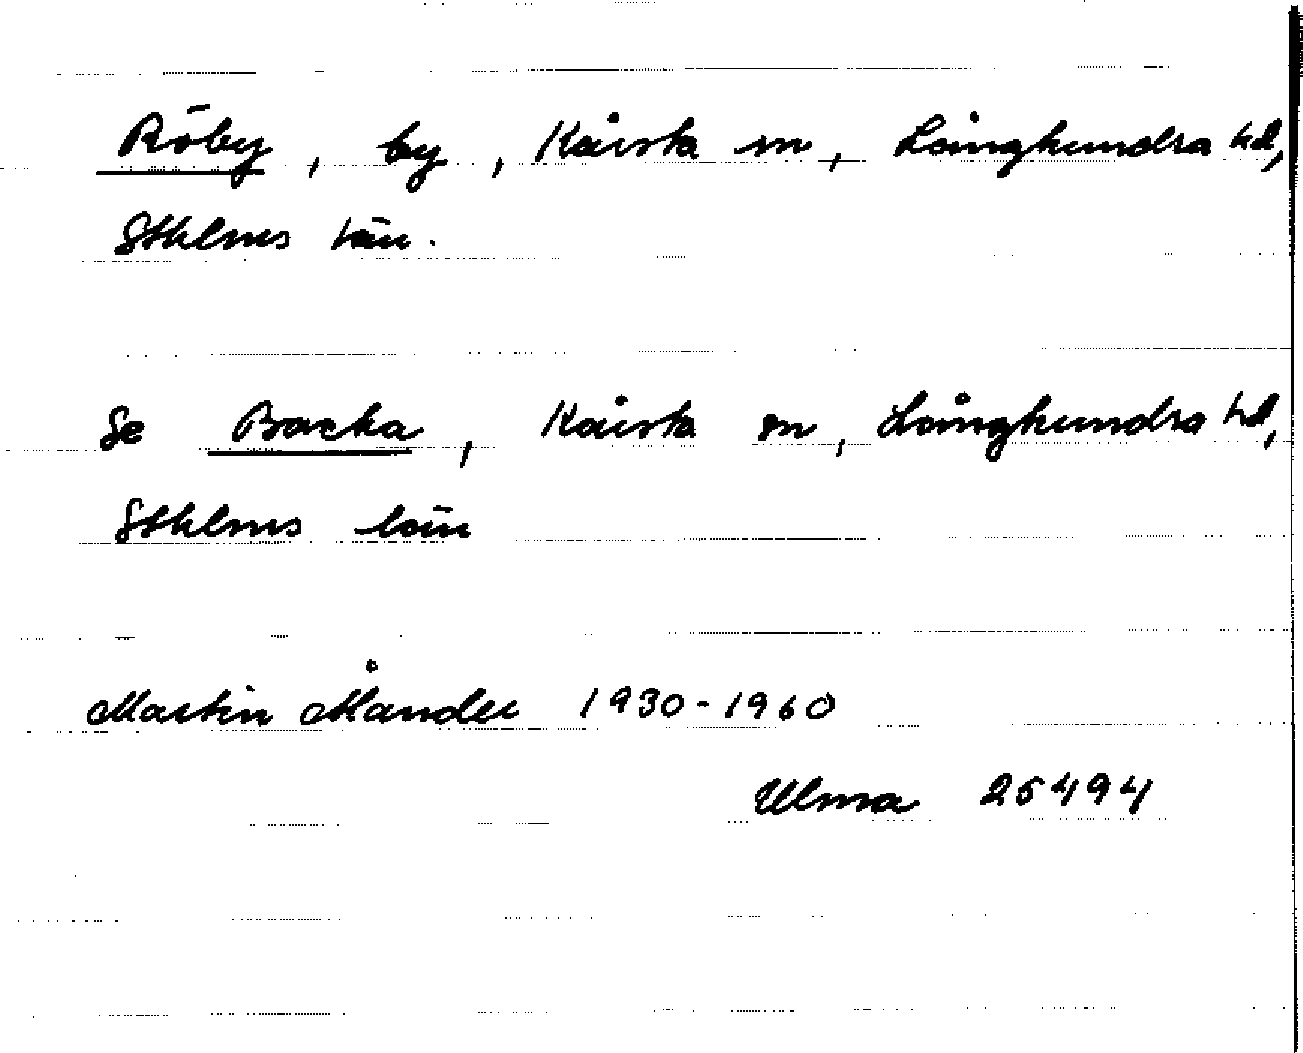 Röby, by, Kårsta sn, Långhundra hd,
Sthlms län.
Se Backa, Kårsta sn, Långhundra hd,
Sthlms län
Martin 1930-1960
Ulma 25494